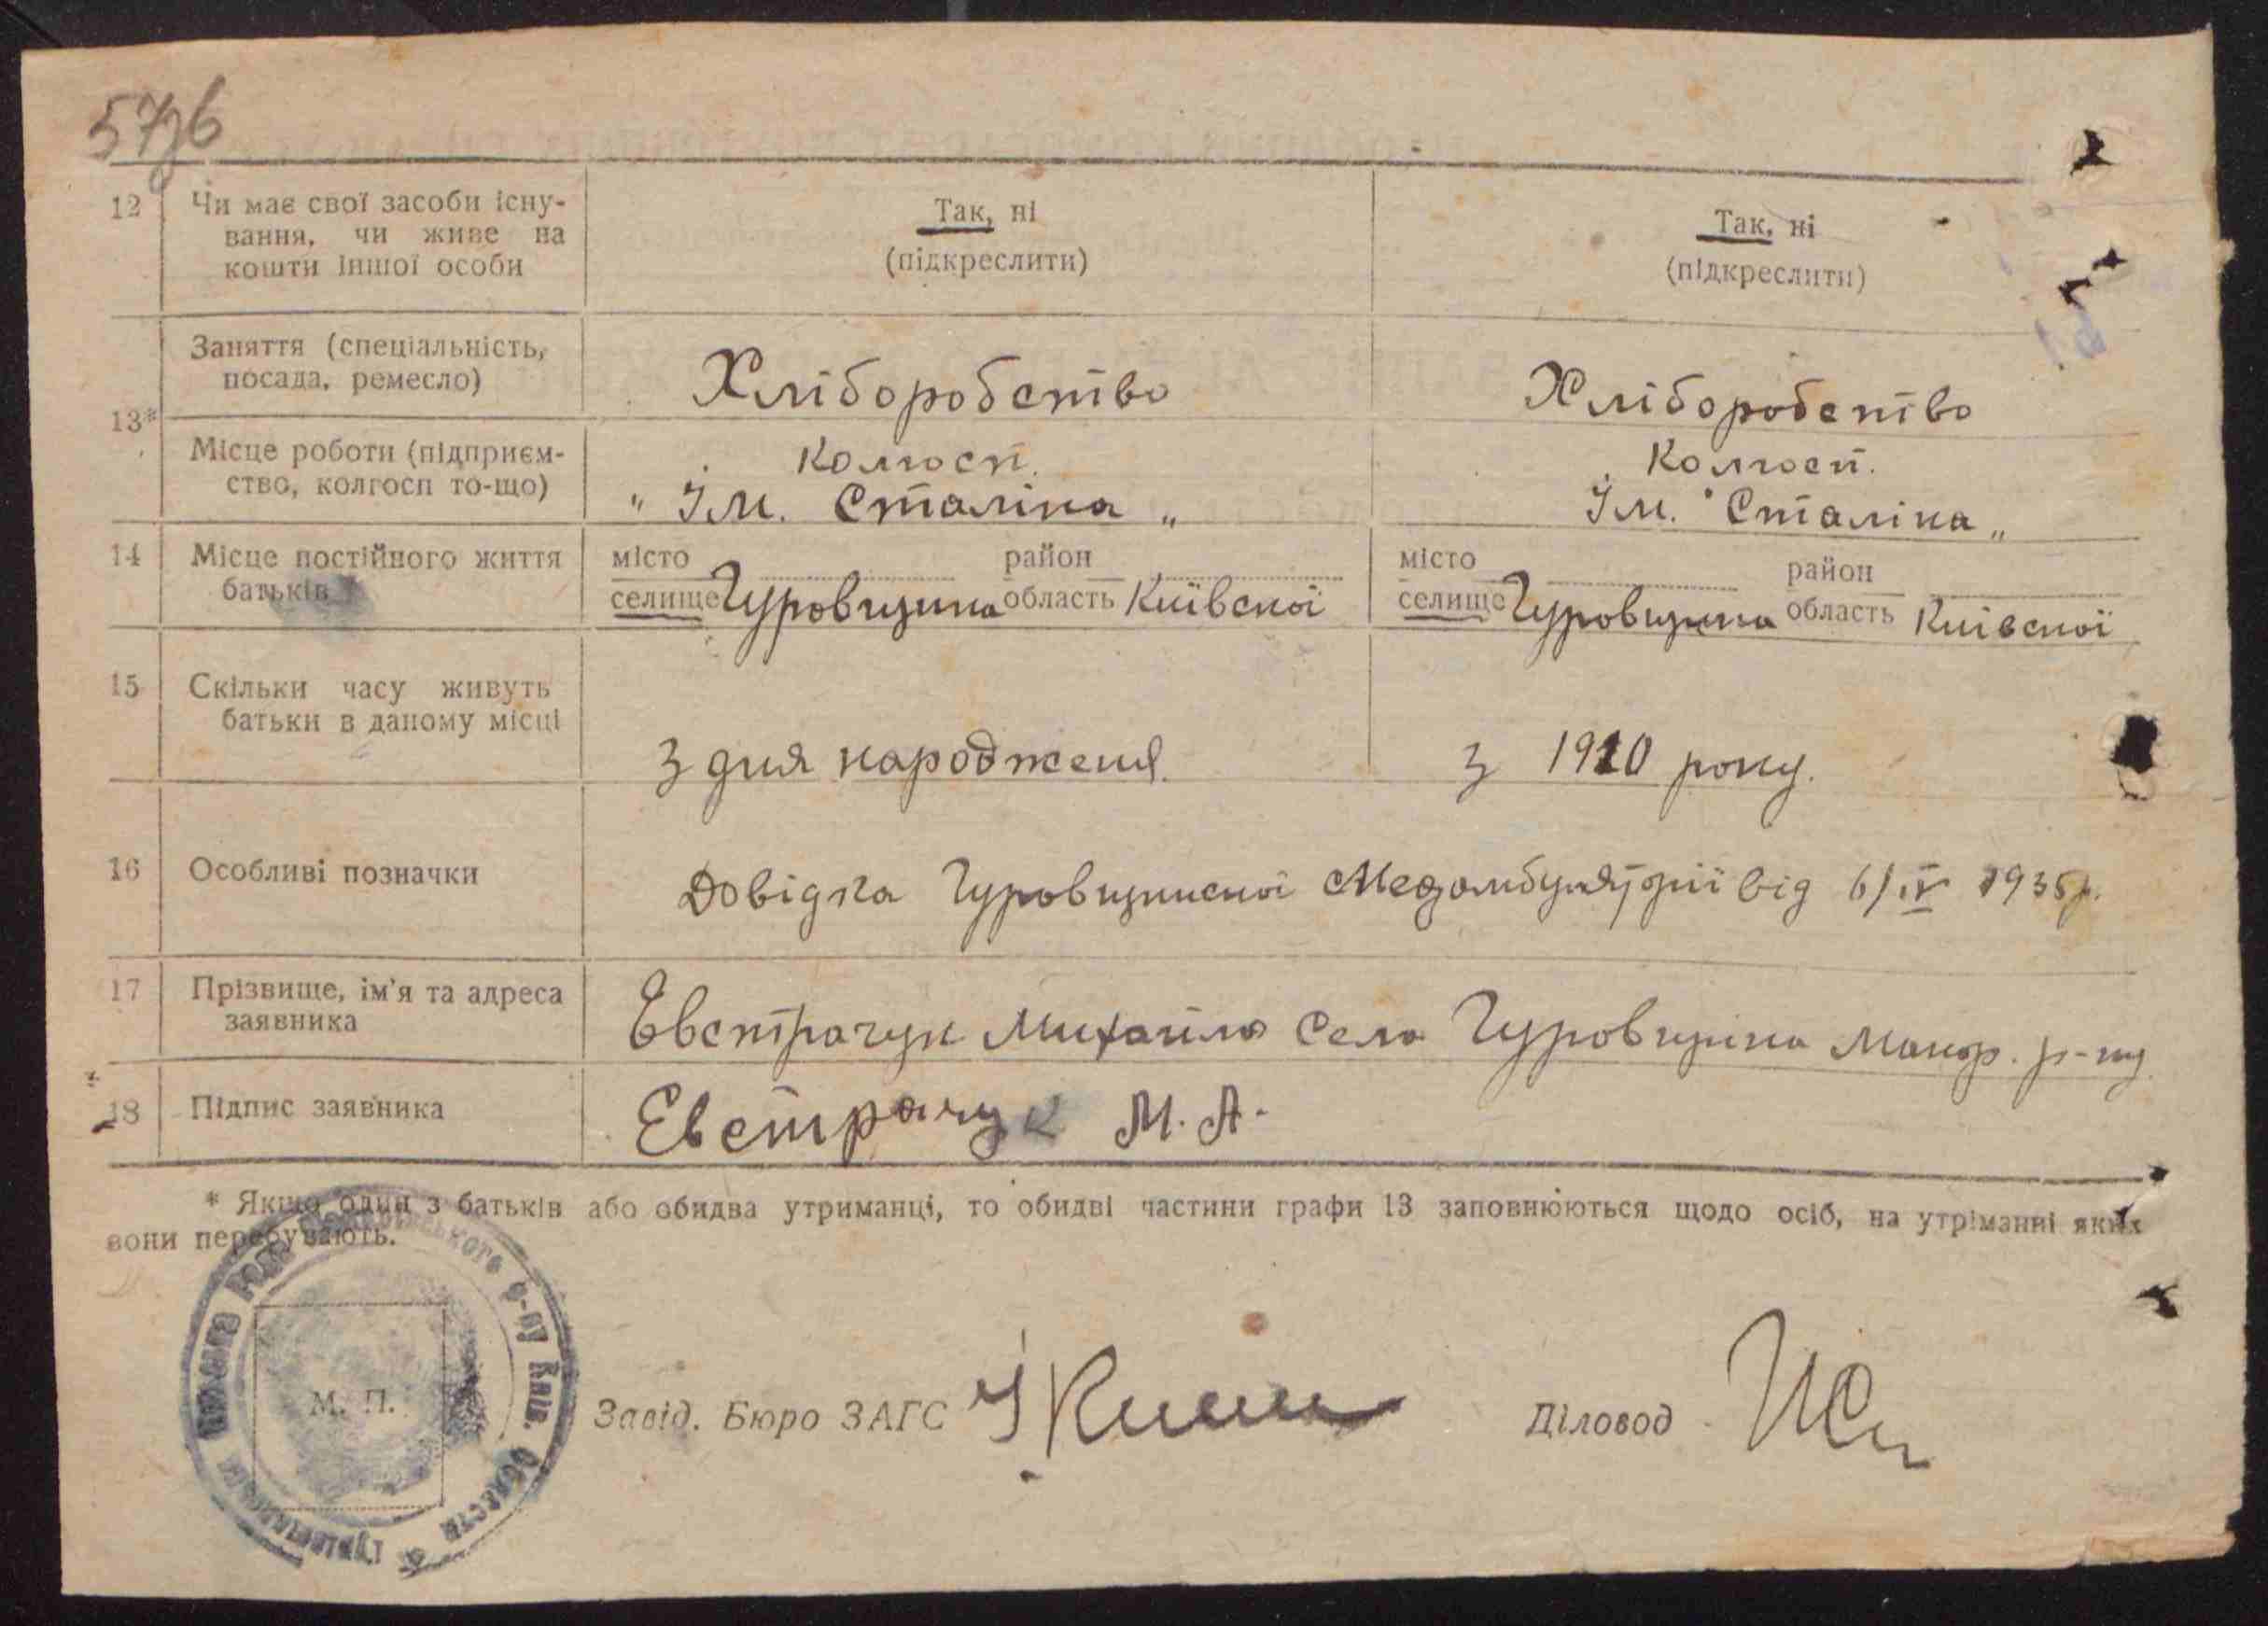 12 Чи має свої засоби існу-
вання, чи живе на
кошти іншої особи
Так, ні
(підкреслити)
Так, ні
(підкреслити)
13*
Заняття (спеціальність,
посада, ремесло)
Хліборобство
Хліборобство
Місце роботи (підприєм-
ство, колгосп то-що)
Колгосп.
"Ім. Сталіна"
Колгосп.
Ім. "Сталіна"
14 Місце постійного життя
батьків
місто район
селище Гуровщина область Київскої
місто район
селище Гуровщина область Київскої
15 Скільки часу живуть
батьки в даному місці
З дня народженя.
з 1910 року.
16 Особливі позначки
Довідка Гуровщинскої Медамбуляторії від 6/IV 1935р.
17 Прізвище, ім'я та адреса
заявника
Евстрачук Михайло Село Гуровщина Макар. р-ну
18 Підпис заявника
Евстрачук М. А.
* Якщо один з батьків або обидва утриманці, то обидві частини графи 13 заповнюються щодо осіб, на утріманні яких
вони перебувають.
р-ну Київ. Области
М. П.
Завід. Бюро ЗАГС
Діловод